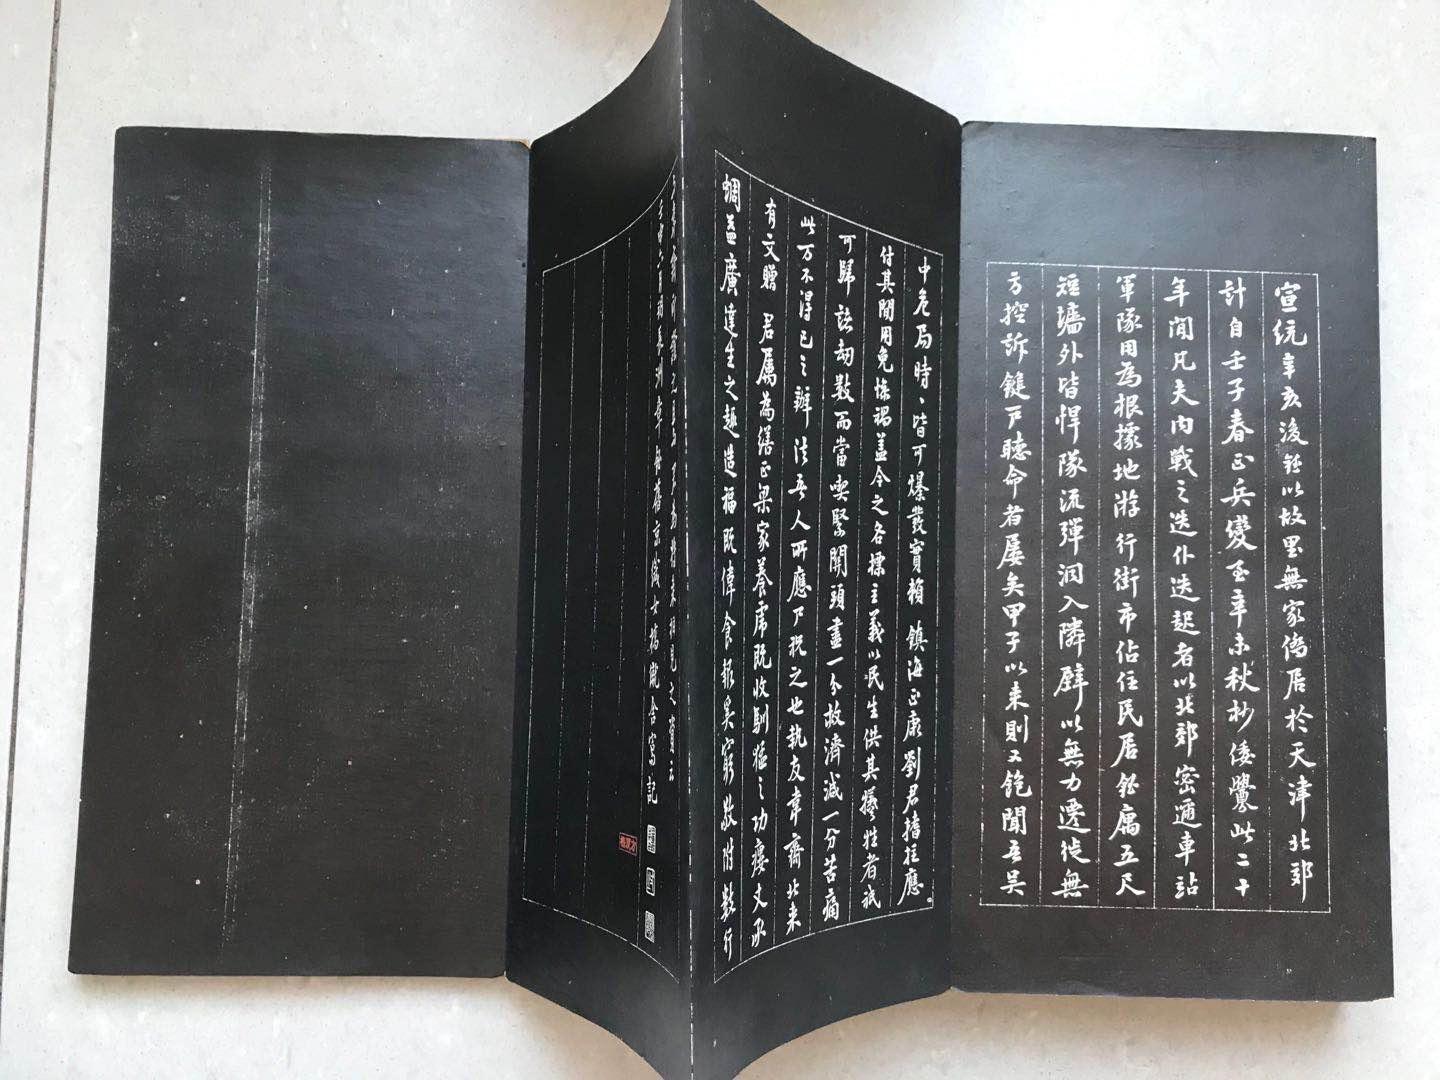 宣統辛亥後鈺以故里無家僑居於天津北郊
計自壬子春正兵變至辛未秋杪倭釁此二十
年間凡夫内戰之迭仆迭起者以北郊密邇車站
軍隊用為根據地游行街市佔住民居鈺屬五尺
短墻外皆悍隊流彈洞入隣壁以無力遷徙無
方控訴鍵戶聽命者屢矣甲子以来則又飽聞
中危局時時皆可爆發實賴鎮海正康劉君搘拄應
付其間用免慘禍蓋今之各標主義以民生供其犧牲者祇
可歸諸劫數而當喫緊關頭盡一分救濟減一分苦痛
此万不得已之辦法吾人所應尸祝之也執友韋齋北来
有文贈君屬為繕正梁家養虎既收馴猛之功痀丈承
蜩益廣達生之趣造福既偉食報奚窮敬附數行
壬申六月初長洲章鈺舊京織女橋儳舍寫記